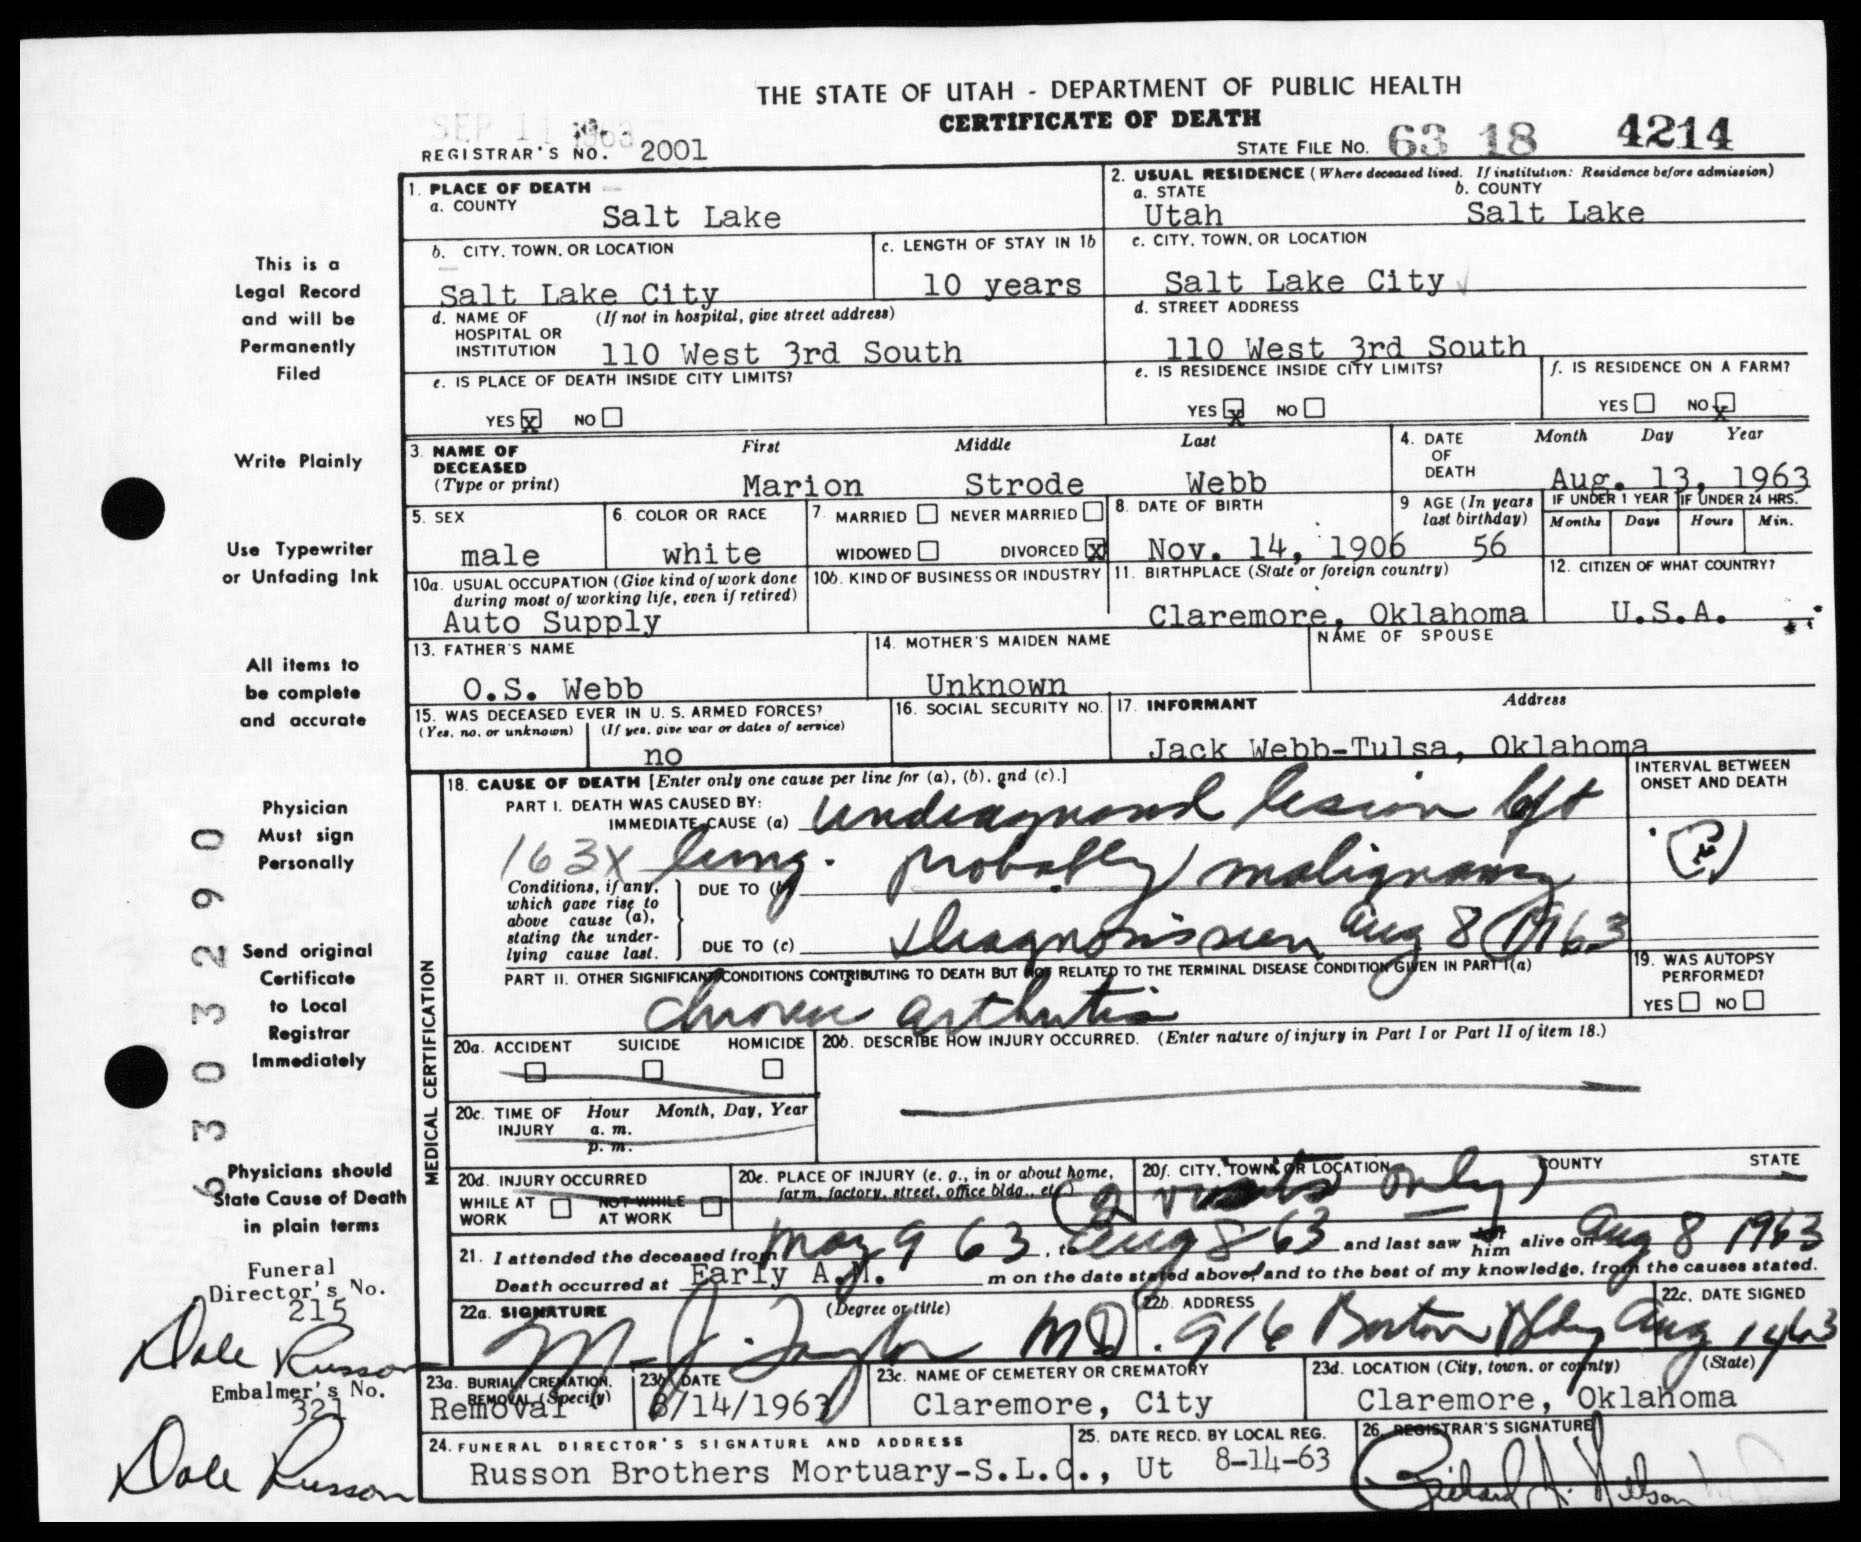 THE STATE OF UTAH - DEPARTMENT OF PUBLIC HEALTH
CERTIFICATE OF DEATH
SEP 11 1963
REGISTRAR'S NO. 2001
STATE FILE NO. 63 18 4214
1. PLACE OF DEATH
a. COUNTY
Salt Lake
2. USUAL RESIDENCE (Where deceased lived. If institution: Residence before admission)
a. STATE b. COUNTY
Utah Salt Lake
b. CITY, TOWN, OR LOCATION
Salt Lake City
c. LENGTH OF STAY IN 1b
10 years
c. CITY, TOWN, OR LOCATION
Salt Lake City
d. NAME OF HOSPITAL OR INSTITUTION (If not in hospital, give street address)
110 West 3rd South
d. STREET ADDRESS
110 West 3rd South
e. IS PLACE OF DEATH INSIDE CITY LIMITS?
YES X NO
e. IS RESIDENCE INSIDE CITY LIMITS?
YES X NO
f. IS RESIDENCE ON A FARM?
YES NO X
3. NAME OF DECEASED (Type or print)
First Middle Last
Marion Strode Webb
4. DATE OF DEATH Month Day Year
Aug. 13, 1963
5. SEX
male
6. COLOR OR RACE
white
7. MARRIED NEVER MARRIED
WIDOWED DIVORCED X
8. DATE OF BIRTH
Nov. 14, 1906
9 AGE (In years last birthday)
56
IF UNDER 1 YEAR IF UNDER 24 HRS.
Months Days Hours Min.
10a. USUAL OCCUPATION (Give kind of work done during most of working life, even if retired)
Auto Supply
10b. KIND OF BUSINESS OR INDUSTRY
11. BIRTHPLACE (State or foreign country)
Claremore, Oklahoma
12. CITIZEN OF WHAT COUNTRY?
U.S.A.
13. FATHER'S NAME
O.S. Webb
14. MOTHER'S MAIDEN NAME
Unknown
NAME OF SPOUSE
15. WAS DECEASED EVER IN U. S. ARMED FORCES?
(Yes, no, or unknown) (If yes, give war or dates of service)
no
16. SOCIAL SECURITY NO.
17. INFORMANT Address
Jack Webb-Tulsa, Oklahoma
MEDICAL CERTIFICATION
18. CAUSE OF DEATH [Enter only one cause per line for (a), (b), and (c).]
INTERVAL BETWEEN ONSET AND DEATH
PART I. DEATH WAS CAUSED BY:
IMMEDIATE CAUSE (a) undiagnosed lesion left
163X lung. probably malignancy
(?)
Conditions, if any, which gave rise to above cause (a), stating the underlying cause last.
DUE TO (b)
DUE TO (c) Aug 8 1963
PART II. OTHER SIGNIFICANT CONDITIONS CONTRIBUTING TO DEATH BUT NOT RELATED TO THE TERMINAL DISEASE CONDITION GIVEN IN PART I(a)
chronic arthritis
19. WAS AUTOPSY PERFORMED?
YES NO
20a. ACCIDENT SUICIDE HOMICIDE
20b. DESCRIBE HOW INJURY OCCURRED. (Enter nature of injury in Part I or Part II of item 18.)
20c. TIME OF INJURY Hour Month, Day, Year
a. m.
p. m.
20d. INJURY OCCURRED
WHILE AT WORK NOT WHILE AT WORK
20e. PLACE OF INJURY (e. g., in or about home, farm, factory, street, office bldg., etc.)
20f. CITY, TOWN, OR LOCATION COUNTY STATE
(2 visits only)
21. I attended the deceased from May 9 63, to Aug 8 63 and last saw him alive on Aug 8 1963
Death occurred at Early A.M. m on the date stated above, and to the best of my knowledge, from the causes stated.
22a. SIGNATURE (Degree or title)
M. J. Taylor MD.
22b. ADDRESS
916 Boston Bldg
22c. DATE SIGNED
Aug 14 63
23a. BURIAL, CREMATION, REMOVAL (Specify)
Removal
23b. DATE
8/14/1963
23c. NAME OF CEMETERY OR CREMATORY
Claremore, City
23d. LOCATION (City, town, or county) (State)
Claremore, Oklahoma
24. FUNERAL DIRECTOR'S SIGNATURE AND ADDRESS
Russon Brothers Mortuary-S.L.C., Ut
25. DATE RECD. BY LOCAL REG.
8-14-63
26. REGISTRAR'S SIGNATURE
This is a
Legal Record
and will be
Permanently
Filed
Write Plainly
Use Typewriter
or Unfading Ink
All items to
be complete
and accurate
Physician
Must sign
Personally
Send original
Certificate
to Local
Registrar
Immediately
Physicians should
State Cause of Death
in plain terms
6303290
Funeral
Director's No.
215
Dale Russon
Embalmer's No.
321
Dale Russon